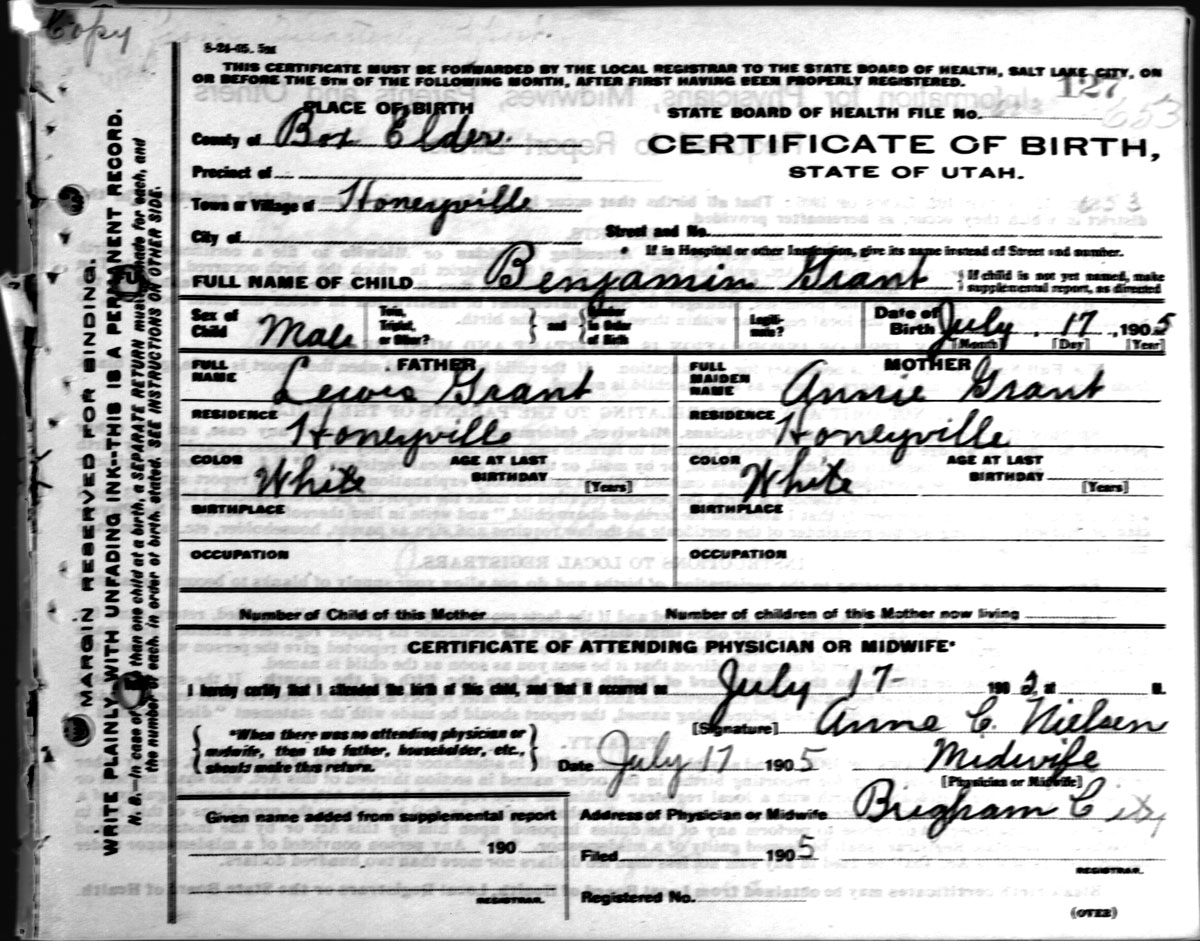 Copy
8-24-05. 5M
THIS CERTIFICATE MUST BE FORWARDED BY THE LOCAL REGISTRAR TO THE STATE BOARD OF HEALTH, SALT LAKE CITY, ON
OR BEFORE THE 5TH OF THE FOLLOWING MONTH, AFTER FIRST HAVING BEEN PROPERLY REGISTERED.
127
PLACE OF BIRTH
STATE BOARD OF HEALTH FILE No. 653
County of Box Elder.
CERTIFICATE OF BIRTH,
STATE OF UTAH.
Precinct of
Town or Village of Honeyville
City of
Street and No.
* If in Hospital or other Institution, give its name instead of Street and number.
FULL NAME OF CHILD Benjamin Grant
{ If child is not yet named, make
supplemental report, as directed
Sex of Child Male
Twin, Triplet, or Other? } and { Number in Order of Birth
Legiti- mate?
Date of Birth July 17, 1905
[Month] [Day] [Year]
FATHER
FULL NAME Lewis Grant
RESIDENCE Honeyville
COLOR White AGE AT LAST BIRTHDAY [Years]
BIRTHPLACE
OCCUPATION
MOTHER
FULL MAIDEN NAME Annie Grant
RESIDENCE Honeyville
COLOR White AGE AT LAST BIRTHDAY [Years]
BIRTHPLACE
OCCUPATION
Number of Child of this Mother
Number of children of this Mother now living
CERTIFICATE OF ATTENDING PHYSICIAN OR MIDWIFE*
I hereby certify that I attended the birth of this child, and that it occurred on July 17- 190 2, at M.
{ *When there was no attending physician or
midwife, then the father, householder, etc.,
should make this return. }
[Signature] Anne C. Nielsen
Date July 17 1905
Midwife
[Physician or Midwife]
Given name added from supplemental report
190
REGISTRAR.
Address of Physician or Midwife Brigham City
Filed 1905
REGISTRAR.
Registered No.
(OVER)
MARGIN RESERVED FOR BINDING.
WRITE PLAINLY, WITH UNFADING INK--THIS IS A PERMANENT RECORD.
N. B.—In case of more than one child at a birth, a SEPARATE RETURN must be made for each, and
the number of each, in order of birth, stated. SEE INSTRUCTIONS ON OTHER SIDE.